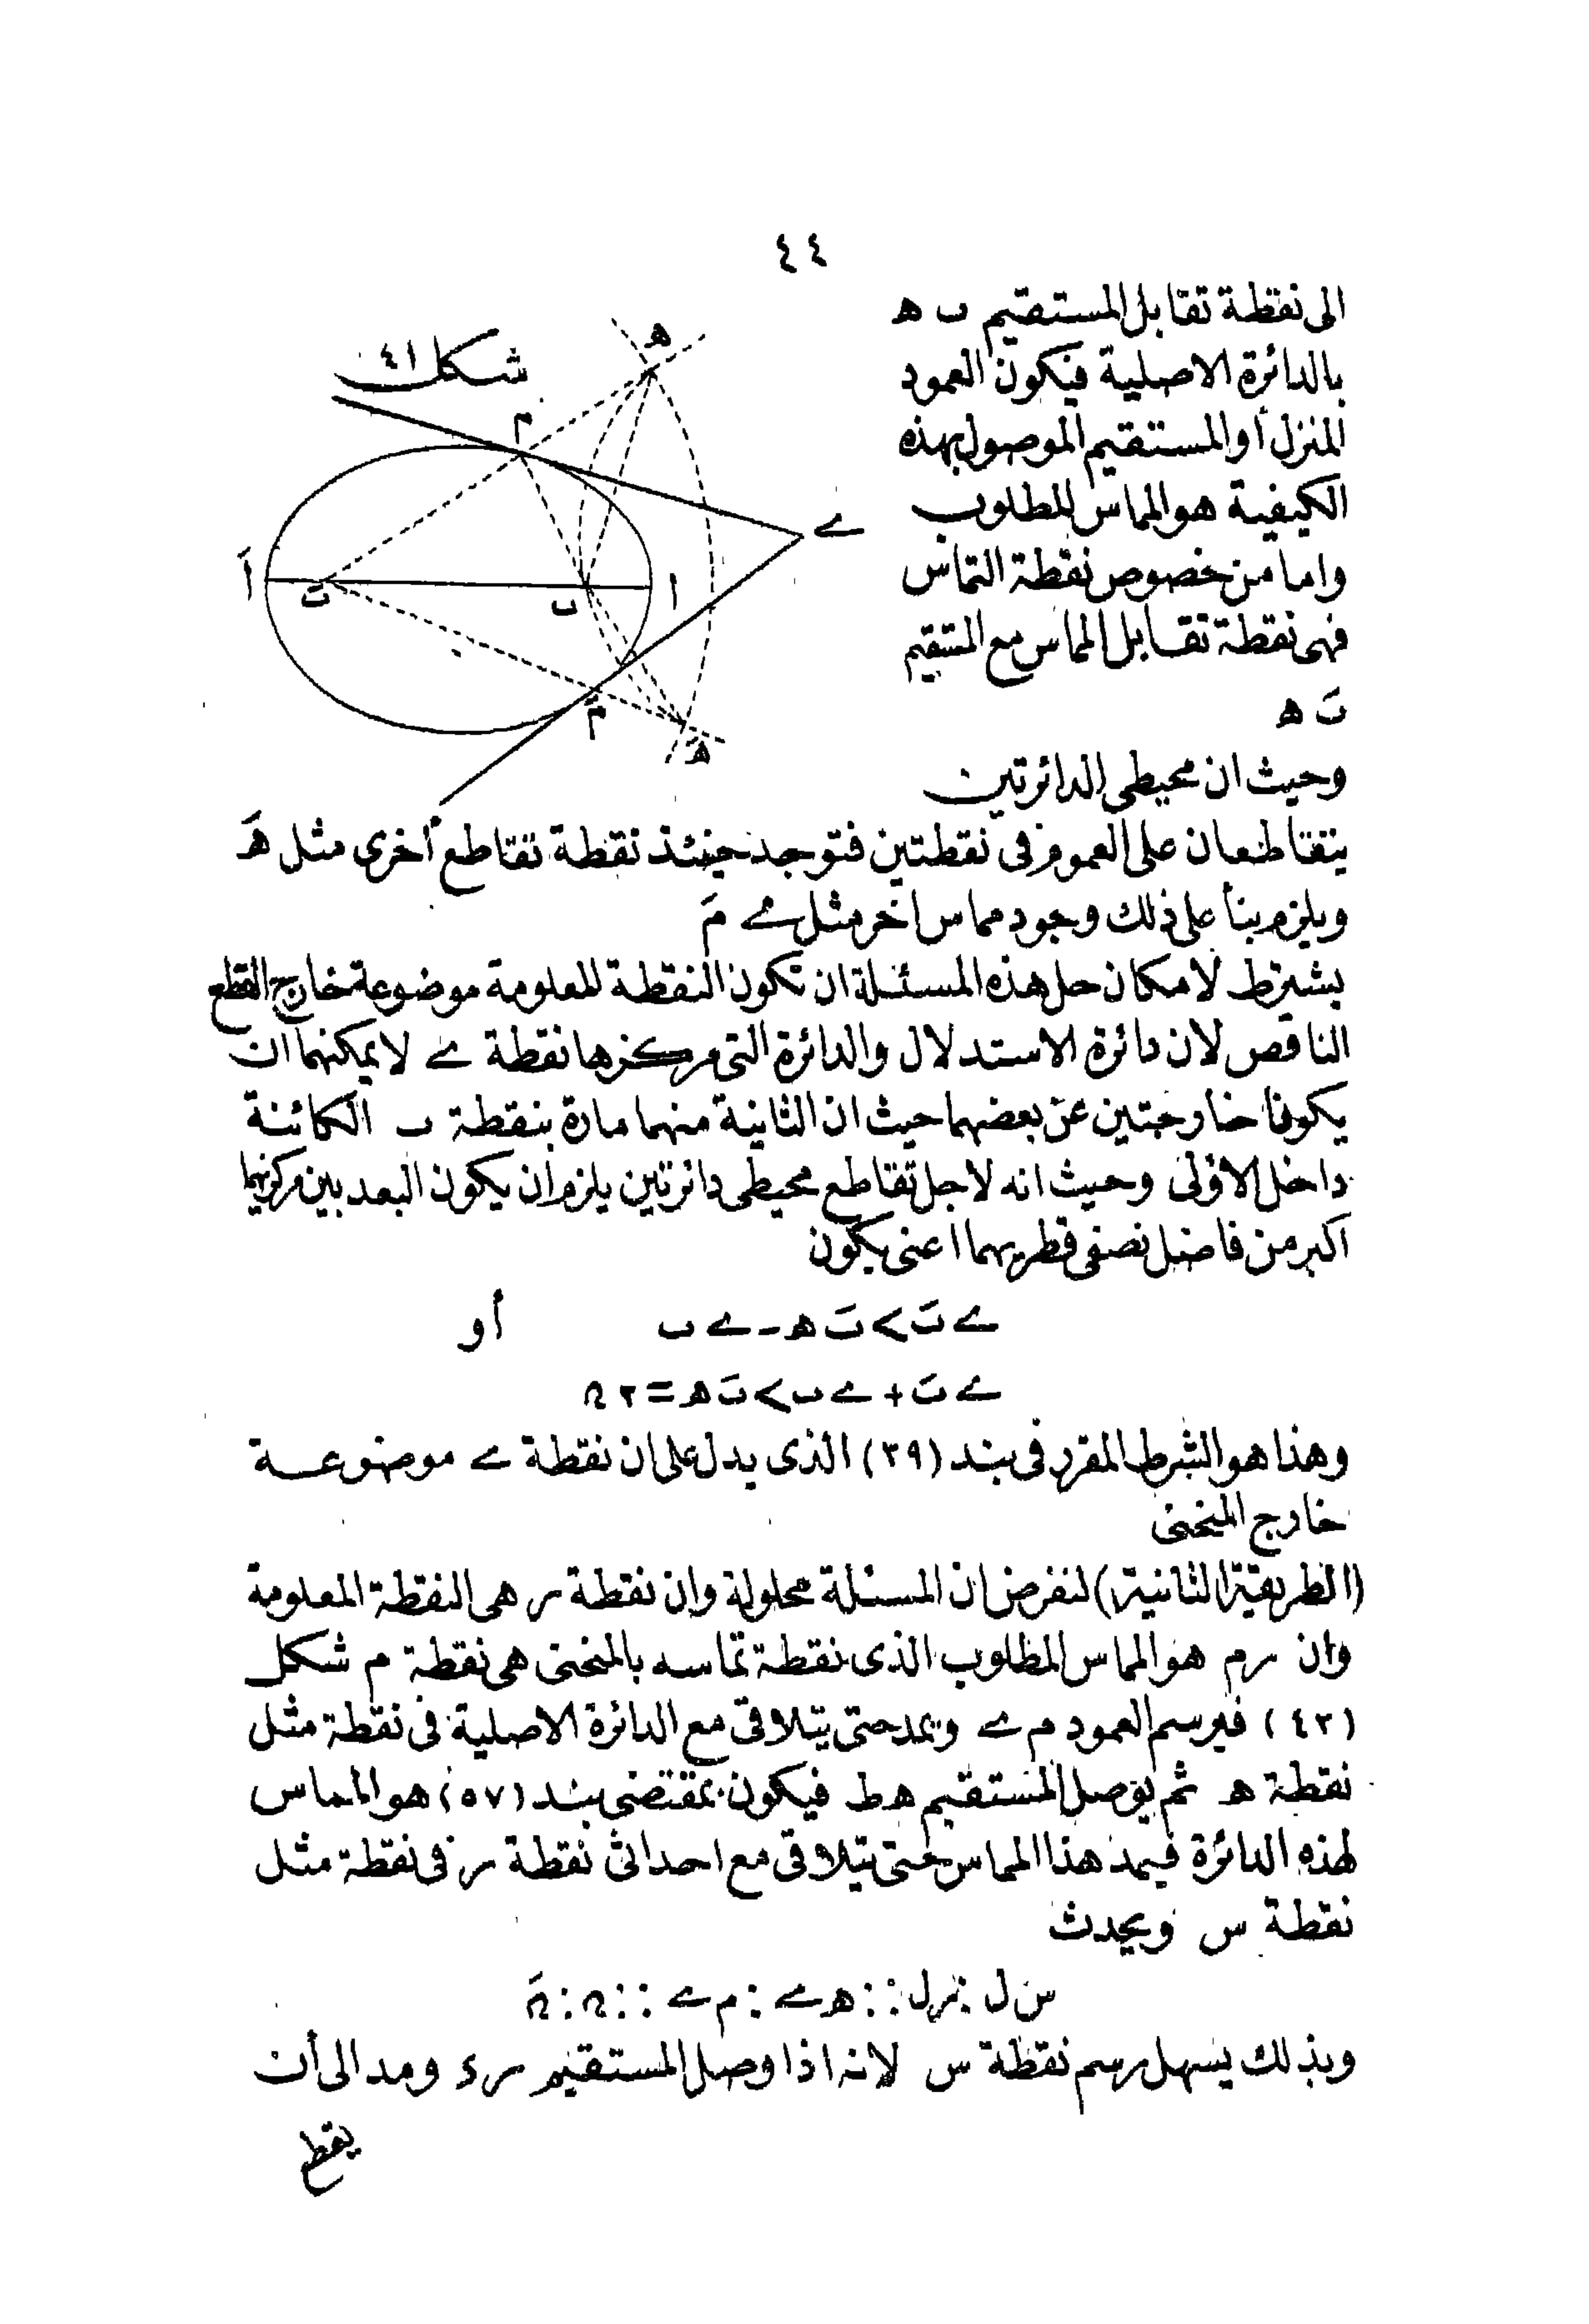 ٤٤
الى نقطة تقابل المستقيم ٮ ه
بالدائرة الاصلية فيكون العمود
المنزل أو المستقيم الموصول بهذه
الكيفية هو المماس المطلوب
واما من خصوص نقطة التماس
فهى نقطة تقابل المماس مع المستقيم
ٮَ ه
شكل ٤١
ه
م
ے
أَ
ٮَ
ٮ
ا
مَ
هَ
وحيث ان محيطى الدائرتين
يتقاطعان على العموم فى نقطتين فتوجد حينئذ نقطة تقاطع أخرى مثل هَ
ويلزم بنأ على ذلك وجود مماس اخر مثل ے مَ
يشترط لامكان حل هذه المسئلة ان تكون النقطة المعلومة موضوعة خارج القطع
الناقص لان دائرة الاستدلال والدائرة التى مركزها نقطة ے لا يمكنهما ان
يكونا خارجتين عن بعضهما حيث ان الثانية منهما مارة بنقطة ٮ الكائنة
داخل الاولى وحيث انه لاجل تقاطع محيطى دائرتين يلزم ان يكون البعد بين مركزيهما
اكبر من فاضل نصفى قطريهما اعنى يكون
ے ٮَ > ٮَ ه - ے ٮ أو
ے ٮَ + ے ٮ > ٮَ ه = ٢ ח
وهذا هو الشرط المقرر فى بند (٣٩) الذى يدل على ان نقطة ے موضوعة
خارج المنحنى
(الطريقة الثانية) لنفرض ان المسئلة محلولة وان نقطة ر هى النقطة المعلومة
وان رم هو المماس المطلوب الذى نقطة تماسه بالمنحنى هى نقطة م شكل
(٤٢) فيرسم العمود م ے ويمد حتى يتلاقى مع الدائرة الاصلية فى نقطة مثل
نقطة ه ثم يوصل المستقيم ه ط فيكون بمقتضى بند (٥٧) هو المماس
لهذه الدائرة فيمد هذا المماس حتى يتلاقى مع احداثى نقطة ر فى نقطة مثل
نقطة س ويحدث
س ل : ر ل :: ه ے : م ے :: ח : חَ
وبذلك يسهل رسم نقطة س لانه اذا وصل المستقيم ر ء ومد الى أن
يقطع